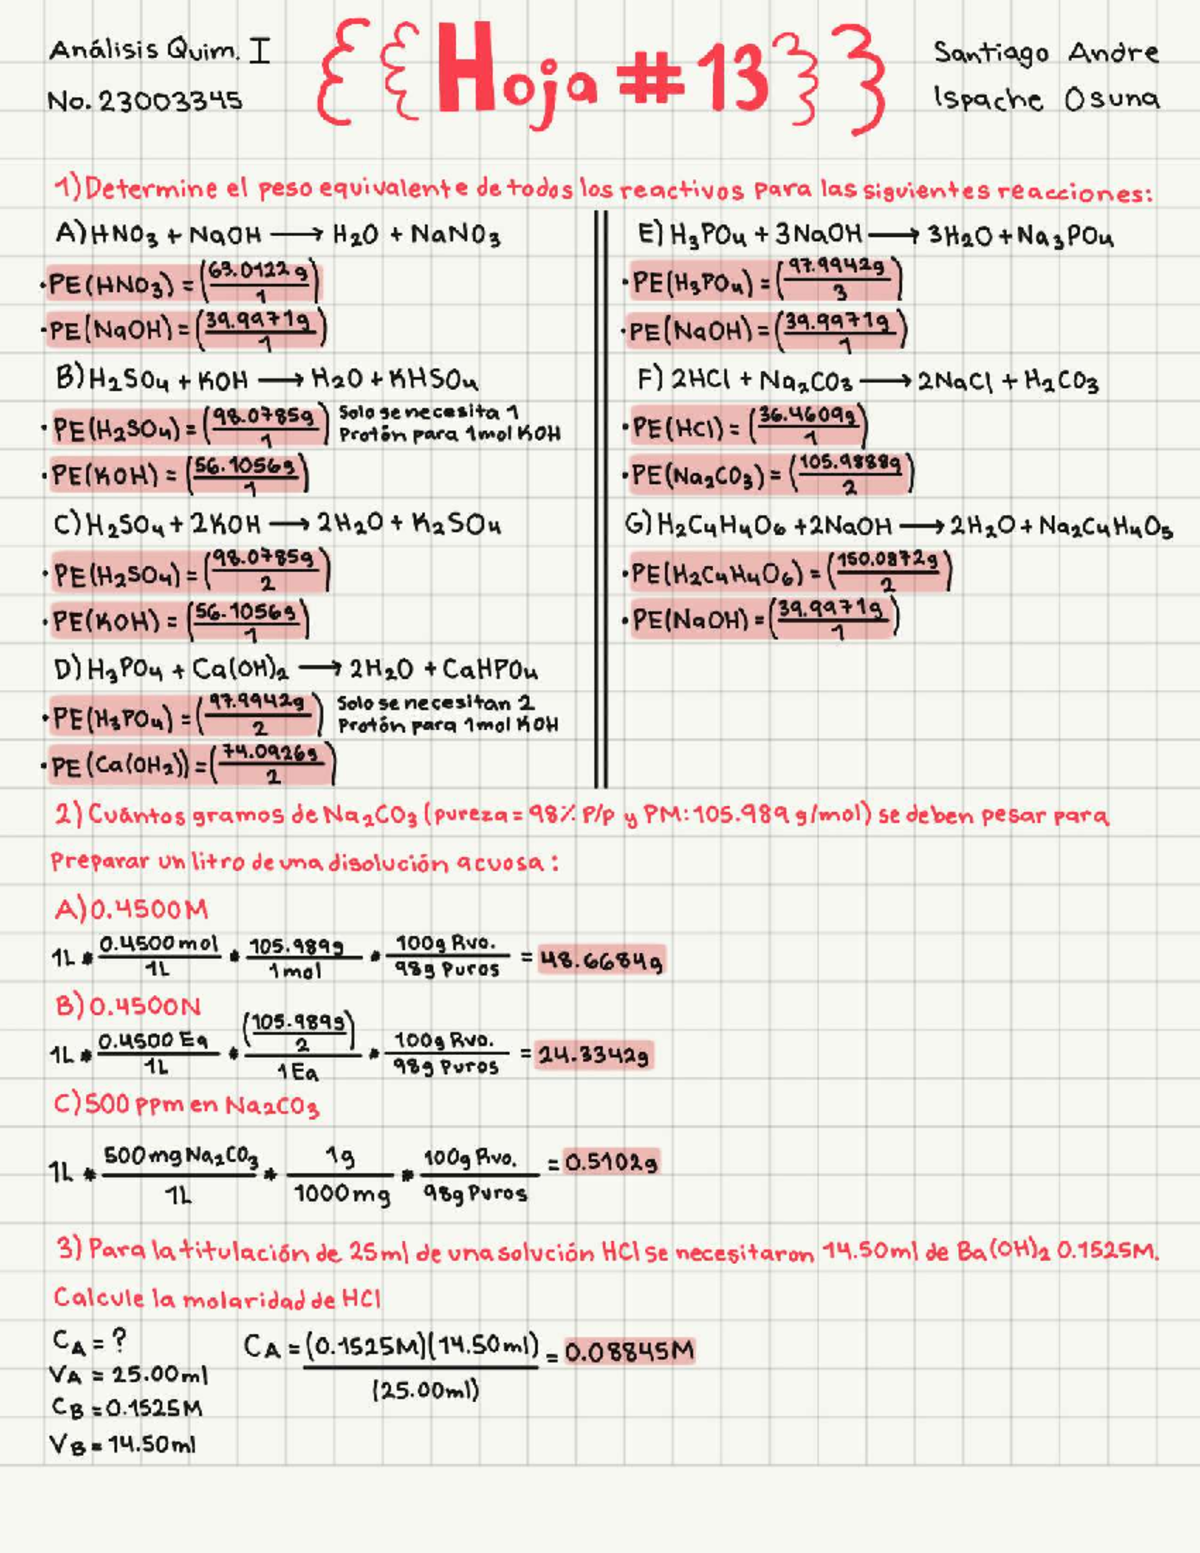 Análisis Quim. I
No. 23003345
{{Hoja #13}}
Santiago Andre
Ispache Osuna
1) Determine el peso equivalente de todos los reactivos para las siguientes reacciones:
A) HNO₃ + NaOH → H₂O + NaNO₃
• PE(HNO₃) = (63.0122g/1)
• PE(NaOH) = (39.9971g/1)
B) H₂SO₄ + KOH → H₂O + KHSO₄
• PE(H₂SO₄) = (98.0785g/1) Solo se necesita 1
Protón para 1mol KOH
• PE(KOH) = (56.1056g/1)
C) H₂SO₄ + 2KOH → 2H₂O + K₂SO₄
• PE(H₂SO₄) = (98.0785g/2)
• PE(KOH) = (56.1056g/1)
D) H₃PO₄ + Ca(OH)₂ → 2H₂O + CaHPO₄
• PE(H₃PO₄) = (97.9942g/2) Solo se necesitan 2
Protón para 1mol KOH
• PE(Ca(OH₂)) = (74.0926g/2)
E) H₃PO₄ + 3NaOH → 3H₂O + Na₃PO₄
• PE(H₃PO₄) = (97.9942g/3)
• PE(NaOH) = (39.9971g/1)
F) 2HCl + Na₂CO₃ → 2NaCl + H₂CO₃
• PE(HCl) = (36.4609g/1)
• PE(Na₂CO₃) = (105.9888g/2)
G) H₂C₄H₄O₆ + 2NaOH → 2H₂O + Na₂C₄H₄O₅
• PE(H₂C₄H₄O₆) = (150.0872g/2)
• PE(NaOH) = (39.9971g/1)
2) Cuántos gramos de Na₂CO₃ (pureza = 98% P/p y PM: 105.989 g/mol) se deben pesar para
Preparar un litro de una disolución acuosa:
A) 0.4500M
1L * 0.4500 mol/1L * 105.989g/1mol * 100g Rvo./98g Puros = 48.6684g
B) 0.4500N
1L * 0.4500 Eq/1L * (105.989g/2)/1Eq * 100g Rvo./98g Puros = 24.3342g
C) 500 ppm en Na₂CO₃
1L * 500mg Na₂CO₃/1L * 1g/1000mg * 100g Rvo./98g Puros = 0.5102g
3) Para la titulación de 25ml de una solución HCl se necesitaron 14.50ml de Ba(OH)₂ 0.1525M.
Calcule la molaridad de HCl
CA = ?
VA = 25.00ml
CB = 0.1525M
VB = 14.50ml
CA = (0.1525M)(14.50ml)/(25.00ml) = 0.08845M